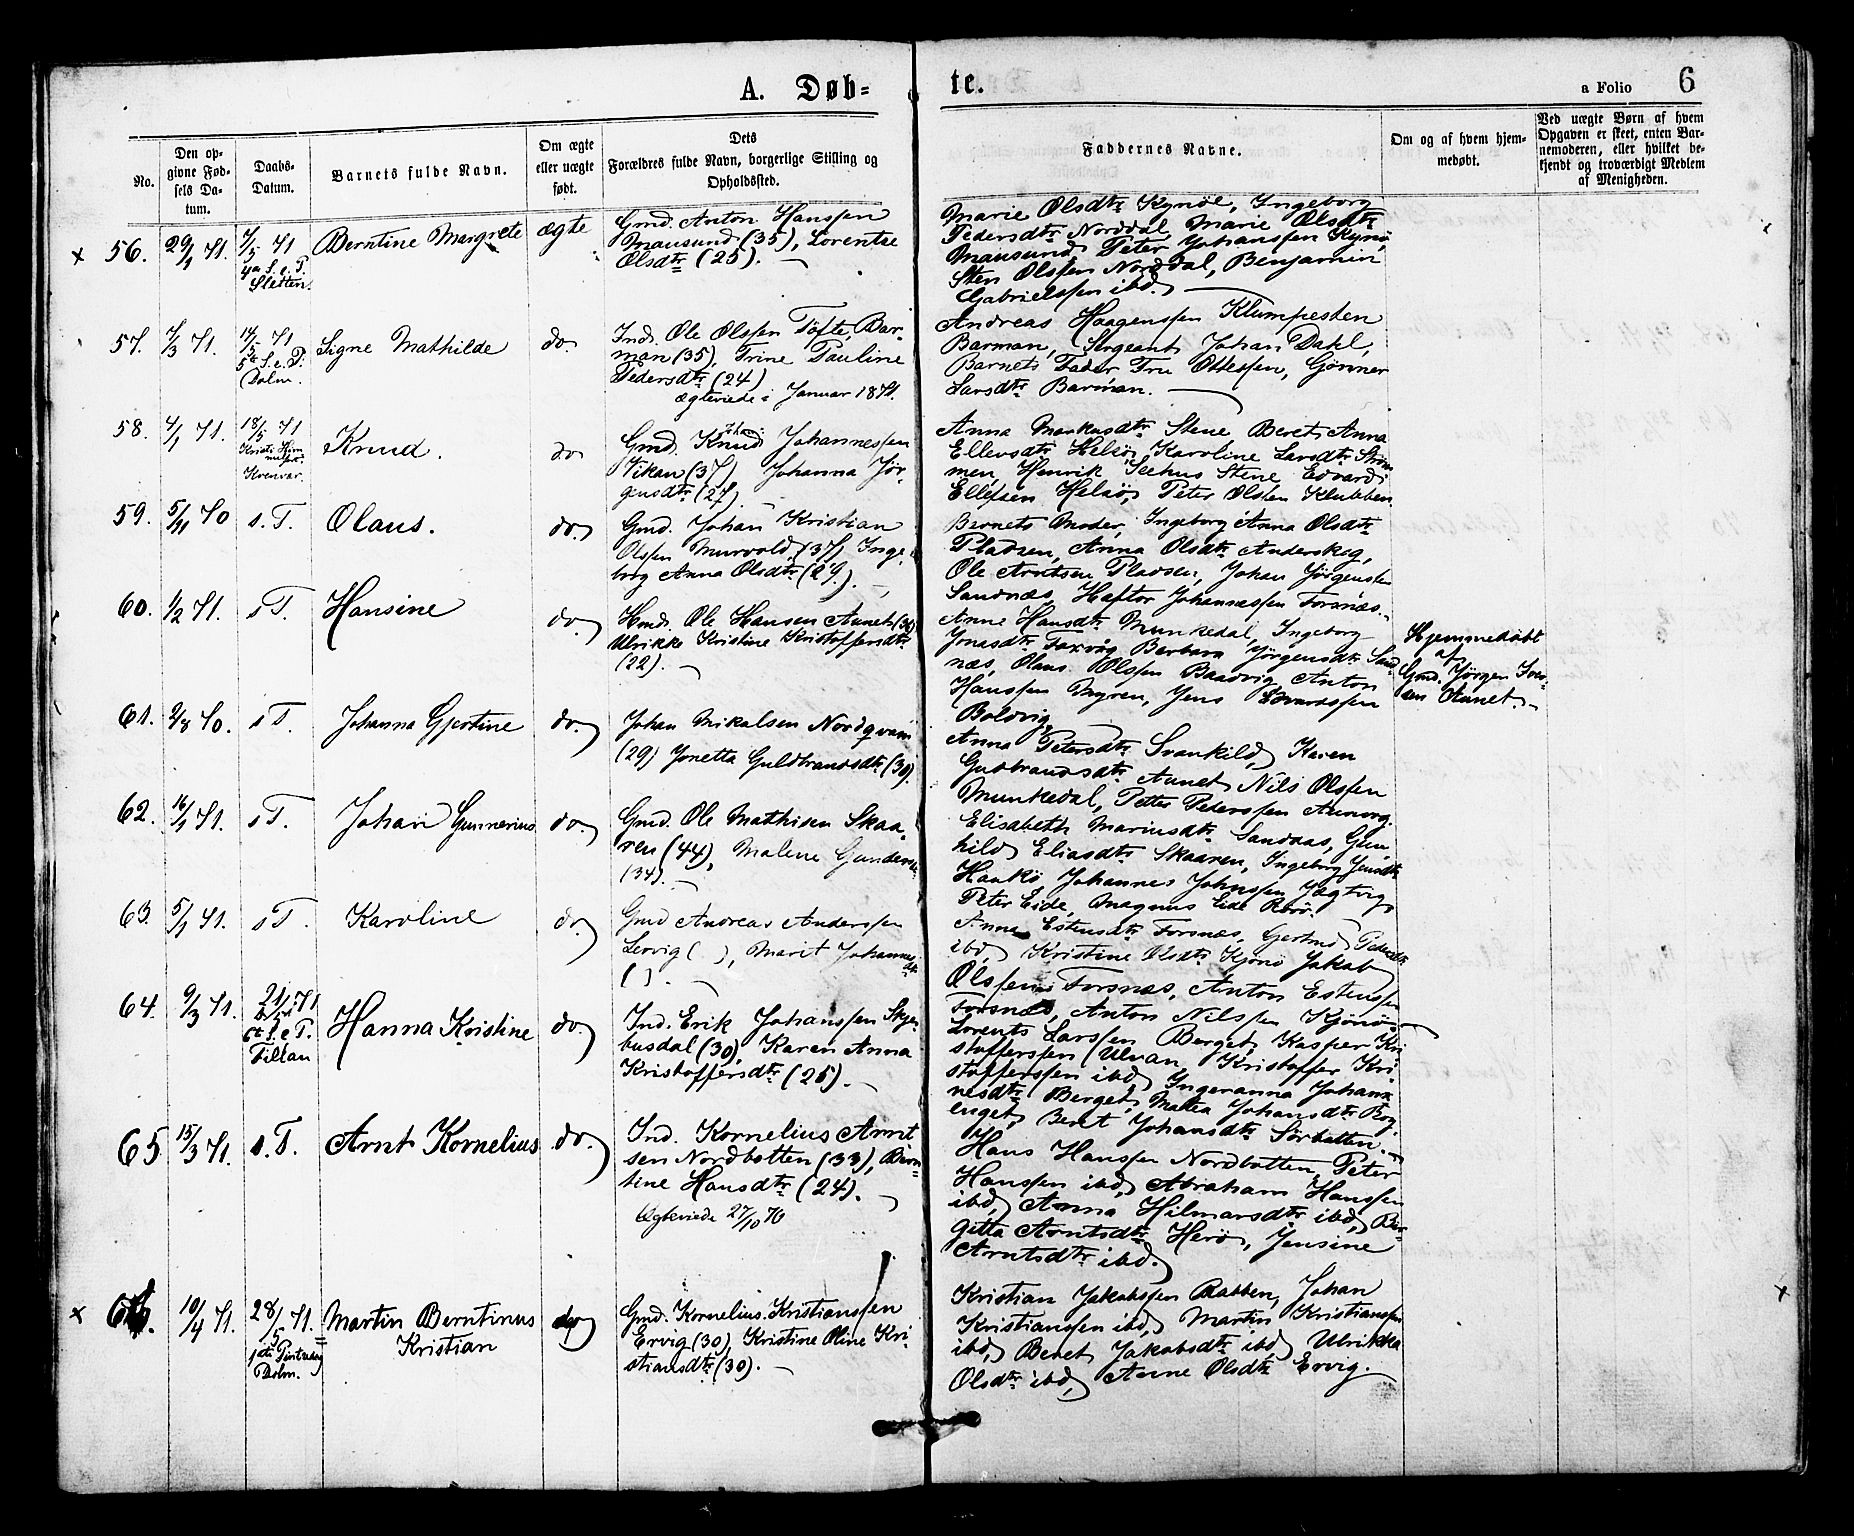 A. Døb-
te.
a Folio 6
No.
Den op-
givne Fød-
sels Da-
tum.
Daabs-
Datum.
Barnets fulde Navn.
Om ægte
eller uægte
født.
Dets
Forældres fulde Navn, borgerlige Stilling og
Opholdssted.
Faddernes Navne.
Om og af hvem hjem-
medøbt.
Ved uægte Børn af hvem
Opgaven er skeet, enten Bar-
nemoderen, eller hvilket be-
kjendt og troværdigt Medlem
af Menigheden.
x 56. 29/1 71.
7/5 71
4de S. e. P.
Sletten.
Berntine Margrete
ægte
Gmd. Anton Hanssen
Mausund (35), Lorentze
Olsdtr (25).
Marie Olsdtr Kynöe, Ingeborg
Pedersdtr Norddal, Marie Olsdtr
Mausund, Peter Johanssen Kynö,
Sten Olssen Norddal, Benjamin
Gabrielssen ibd.
57. 7/3 71.
14/5 71
5te S. e. P.
Dolm.
Signe Mathilde
do.
Ind. Ole Olssen Töfte, Bar-
man (35), Trine Pauline
Pedersdtr (24)
Ægteviede i Januar 1871.
Andreas Haagenssen Klumpesten
Barman, Sergeant Johan Dahl,
Barnets Fader Fru Ottessen, Gönner
Larsdtr Barman.
58. 4/1 71.
18/5 71
Kristi Him-
melfart.
Kvenvær
Knud.
do
Gmd. Knud Johannessen
Vikan (37), Johanna Jör-
gensdtr (27).
Anna Markusdtr Stene Beret Anna
Ellevsdtr Helsö, Karoline Larsdtr Ström-
men, Henrik Seehus Stene, Edvard
Ellefsen Helsö, Peter Olsen Klubben.
59. 5/11 70
s. T.
Olaus.
do.
Gmd. Johan Kristian
Olssen Murvold (37), Inge-
borg Anna Olsdtr (29).
Barnets Moder, Ingeborg Anna Olsdtr
Pladsen, Anna Olsdtr Anderskog,
Ole Arntsen Pladsen, Johan Jörgenssen
Sandnæs, Haftor Johannessen Forsnæs.
60. 1/2 71.
s T.
Hansine
do.
Hmd. Ole Hansen Aunet (30)
Ulrikke Kristine Kristoffersdtr
(22).
Anne Hansdtr Munkedal, Ingeborg
Jonesdtr Faxvåg Barbara Jörgensdtr Sand-
næs, Olaus Olssen Baadvig Anton
Hanssen Myren, Jens Edvardssen
Boldvig
Hjemmedøbt
af
Gmd. Jørgen Iver-
sen Aunet.
61. 2/8 70.
s T.
Johanna Gjertine
do.
Johan Mikalsen Nordqvam
(29) Jonetta Guldbrandsdtr (30).
Anna Petersdtr Svankild, Karen
Gudbrandsdtr Aunet, Nils Olssen
Munkedal, Petter Pederssen Aunvog.
62. 16/1 71.
s T.
Johan Gunnerius
do.
Gmd. Ole Mathisen Skaa-
ren (44), Malene Gunders
(34).
Elisabeth Mariusdtr Sandnæs, Gun-
hild Eliasdtr Skaaren, Ingeborg Jensdtr
Hankö Johannes Johnssen Jægtvig,
Peter Eide, Magnus Eide Rörö.
63. 5/1 71.
s T.
Karoline
do.
Gmd Andreas Anderssen
Lervig ( ), Marit Johannes-
dtr
( ).
Anna Estensdtr Forsnæs, Gertrud Pedersdtr
ibd, Kristine Olsdtr Kjönö Jakob
Olssen Forsnæs, Anton Estenssen
Forsnæs, Anton Nilssen Kjönö.
64. 9/3 71.
21/5 71
6te S. e. P.
Fillan
Hanna Kristine
do.
Ind. Erik Johanssen Skje-
busdal (30), Karen Anna
Kristoffersdtr (25).
Lorents Larssen Berget, Kasper Kri-
stofferssen Ulvan, Kristoffer Kri-
stofferssen ibd, Ingeranna Johan-
nesdtr Berget, Matea Johansdtr Røg-
enget, Beret Johansdtr Sörbotten.
65 15/3 71.
s. T.
Arnt Kornelius
do.
Ind. Kornelius Arnt
sen Nordbotten (33), Bern-
tine Hansdtr (24).
Ægteviede 27/10 70
Hans Hanssen Nordbotten, Peter
Hanssen ibd, Abraham Hanssen
ibd, Anna Hilmarsdtr ibd, Ber-
gitta Arntsdtr Herö, Jensine
Arntsdtr ibd.
x 66. 10/4 71.
28/5 71.
1ste Pintsedag
Dolm.
Martin Berntinus
Kristian
do
Gmd. Kornelius Kristianssen
Ervig (30), Kristine Oline Kri
stiansdtr (30).
Kristian Jakobssen Rabben, Johan
Kristianssen ibd, Martin Kristianssen
ibd, Beret Jakobsdtr ibd, Ulrikka
Olsdtr ibd, Anne Olsdtr Ervig.
x